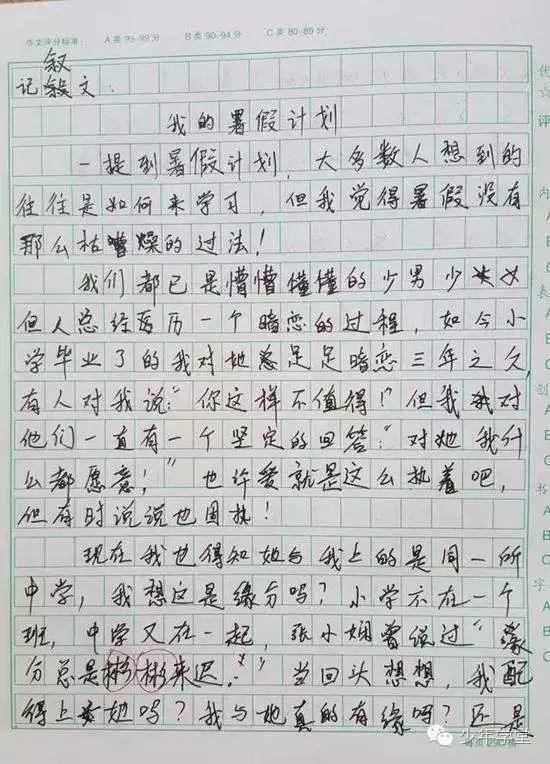 作文评分标准： A类95-99分 B类90-94分 C类80-89分
叙
记文：
我的暑假计划
一提到暑假计划，大多数人想到的
往往是如何来学习，但我觉得暑假没有
那么枯燥的过法！
我们都已是懵懵懂懂的少男少女
但人总经历一个暗恋的过程，如今小
学毕业了的我对她足足暗恋三年之久，
有人对我说：“你这样不值得！”但我对
他们一直有一个坚定的回答：“对她我什
么都愿意！”也许爱就是这么执着吧，
但有时说说也固执！
现在我也得知她与我上的是同一所
中学，我想这是缘分吗？小学不在一个
班，中学又在一起，张小娴曾说过“缘
分总是彬彬来迟。”当回头想想，我配
得上她吗？我与她真的有缘吗？还是
少年学堂
评
内
创
书
字